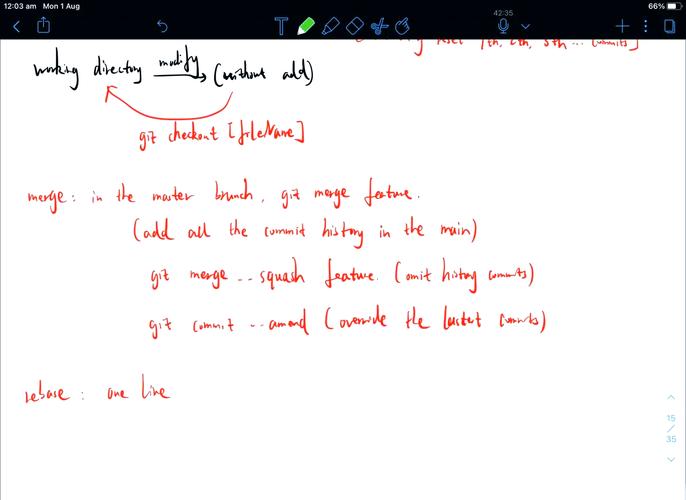 12:03 am Mon 1 Aug
66%
42:35
T
reset 7th, 6th, 5th ... commits]
working directory modify (without add)
git checkout [fileName]
merge: in the master brunch, git merge feature.
(add all the commit history in the main)
git merge --squash feature. (omit history commits)
git commit --amend (override the lastest commits)
rebase: one line
15
/
35